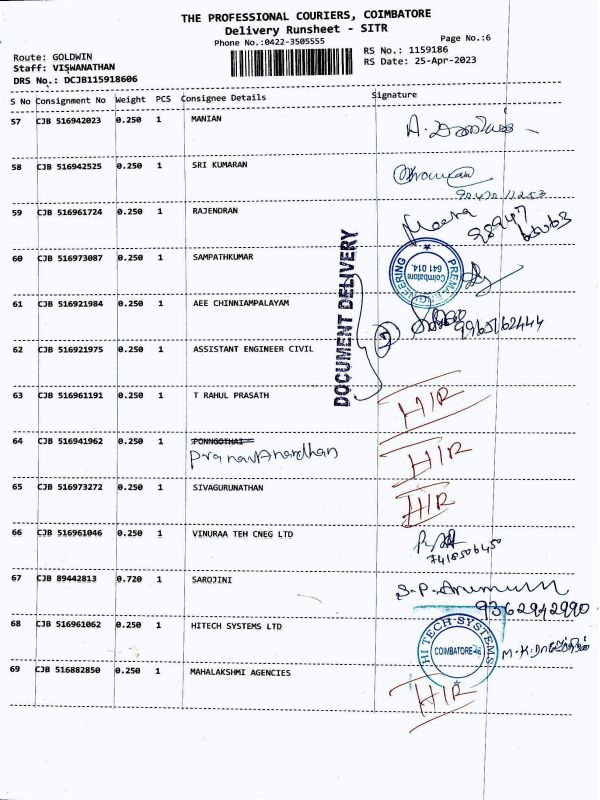 THE PROFESSIONAL COURIERS, COIMBATORE
Delivery Runsheet - SITR
Phone No.:0422-3505555
Page No.:6
Route: GOLDWIN
RS No.: 1159186
Staff: VISWANATHAN
RS Date: 25-Apr-2023
DRS No.: DCJB115918606
S No Consignment No Weight PCS Consignee Details Signature
57 CJB 516942023 0.250 1 MANIAN
58 CJB 516942525 0.250 1 SRI KUMARAN
59 CJB 516961724 0.250 1 RAJENDRAN
Meera
98947
60 CJB 516973087 0.250 1 SAMPATHKUMAR
Coimbatore
641 014.
DOCUMENT DELIVERY
61 CJB 516921984 0.250 1 AEE CHINNIAMPALAYAM
9965162444
62 CJB 516921975 0.250 1 ASSISTANT ENGINEER CIVIL
63 CJB 516961191 0.250 1 T RAHUL PRASATH
H/R
64 CJB 516941962 0.250 1 PONNGOTHAI
Pranav Anandhan
H/R
65 CJB 516973272 0.250 1 SIVAGURUNATHAN
H/R
66 CJB 516961046 0.250 1 VINURAA TEH CNEG LTD
7418506450
67 CJB 89442813 0.720 1 SAROJINI
S.P.
9362942990
68 CJB 516961062 0.250 1 HITECH SYSTEMS LTD
HI TECH SYSTEMS
COIMBATORE
69 CJB 516882850 0.250 1 MAHALAKSHMI AGENCIES
H/R